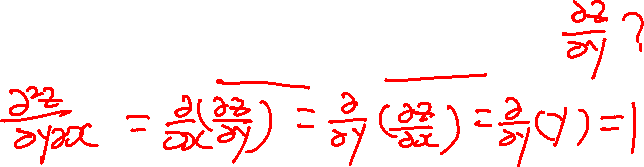 ∂z/∂y ?
∂²z/∂y∂x = ∂/∂x(∂z/∂y) = ∂/∂y(∂z/∂x) = ∂/∂y(y) = 1